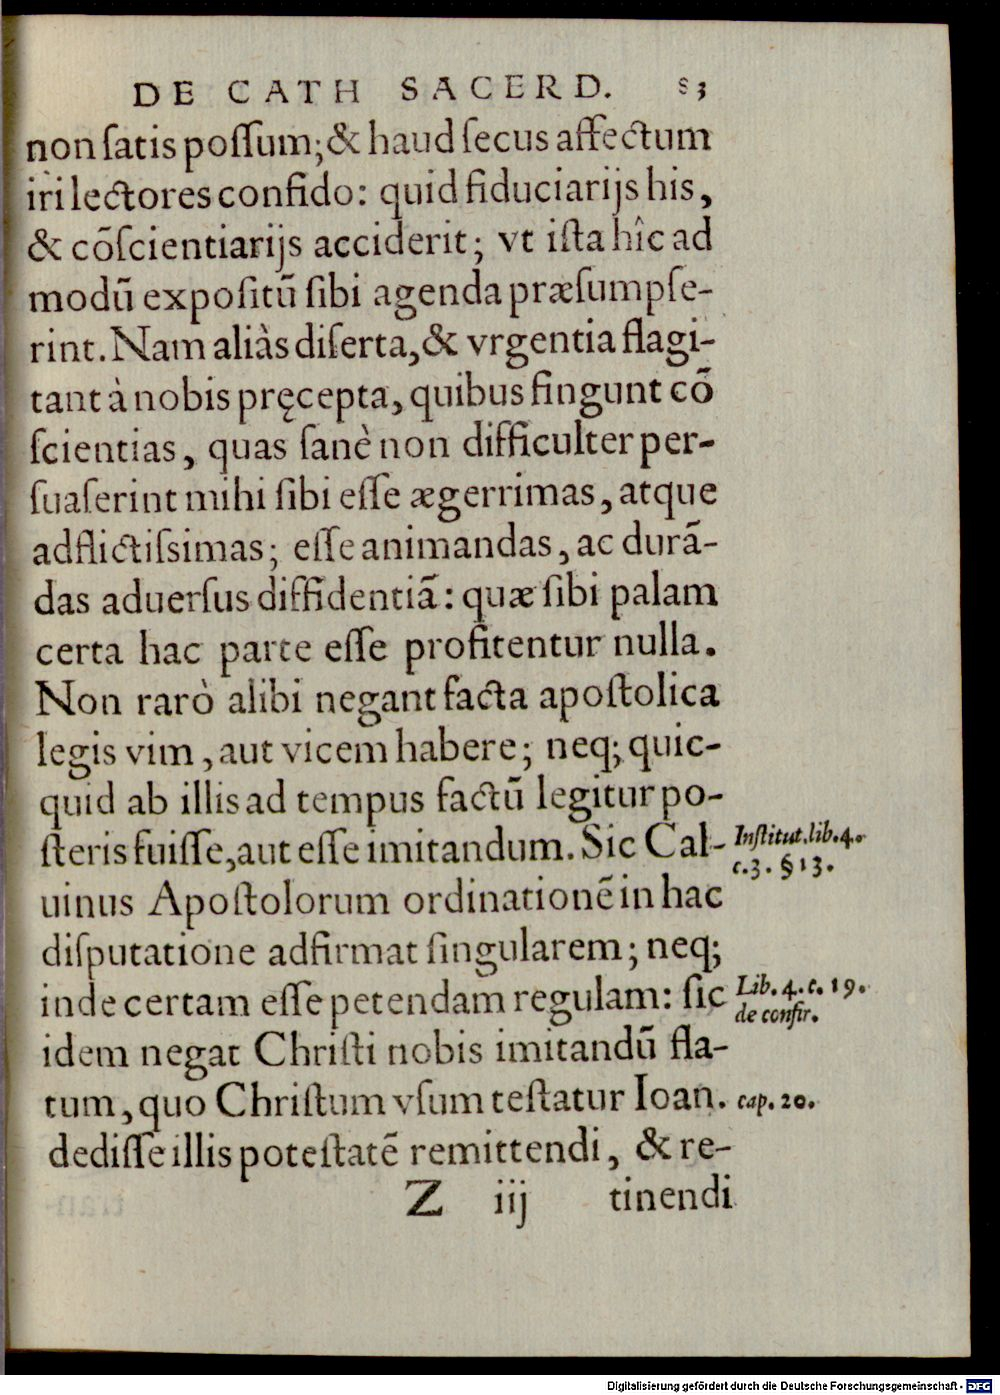 DE CATH SACERD. 53
non ſatis poſſum; & haud ſecus affectum
iri lectores confido: quid fiduciarijs his,
& cõſcientiarijs acciderit; vt iſta hîc ad
modũ expoſitũ ſibi agenda præſumpſe-
rint. Nam aliàs diſerta, & vrgentia flagi-
tant à nobis pręcepta, quibus fingunt cõ
ſcientias, quas ſanè non difficulter per-
ſuaſerint mihi ſibi eſſe ægerrimas, atque
adflictiſsimas; eſſe animandas, ac durã-
das aduerſus diffidentiã: quæ ſibi palam
certa hac parte eſſe profitentur nulla.
Non rarò alibi negant facta apoſtolica
legis vim, aut vicem habere; neq; quic-
quid ab illis ad tempus factũ legitur po-
ſteris fuiſſe, aut eſſe imitandum. Sic Cal-
Inſtitut. lib. 4.
c. 3. § 13.
uinus Apoſtolorum ordinationẽ in hac
diſputatione adfirmat ſingularem; neq;
inde certam eſſe petendam regulam: ſic
Lib. 4. c. 19.
de confir.
idem negat Chriſti nobis imitandũ fla-
tum, quo Chriſtum vſum teſtatur Ioan.
cap. 20.
dediſſe illis poteſtatẽ remittendi, & re-
Z iij tinendi
Digitalisierung gefördert durch die Deutsche Forschungsgemeinschaft - DFG